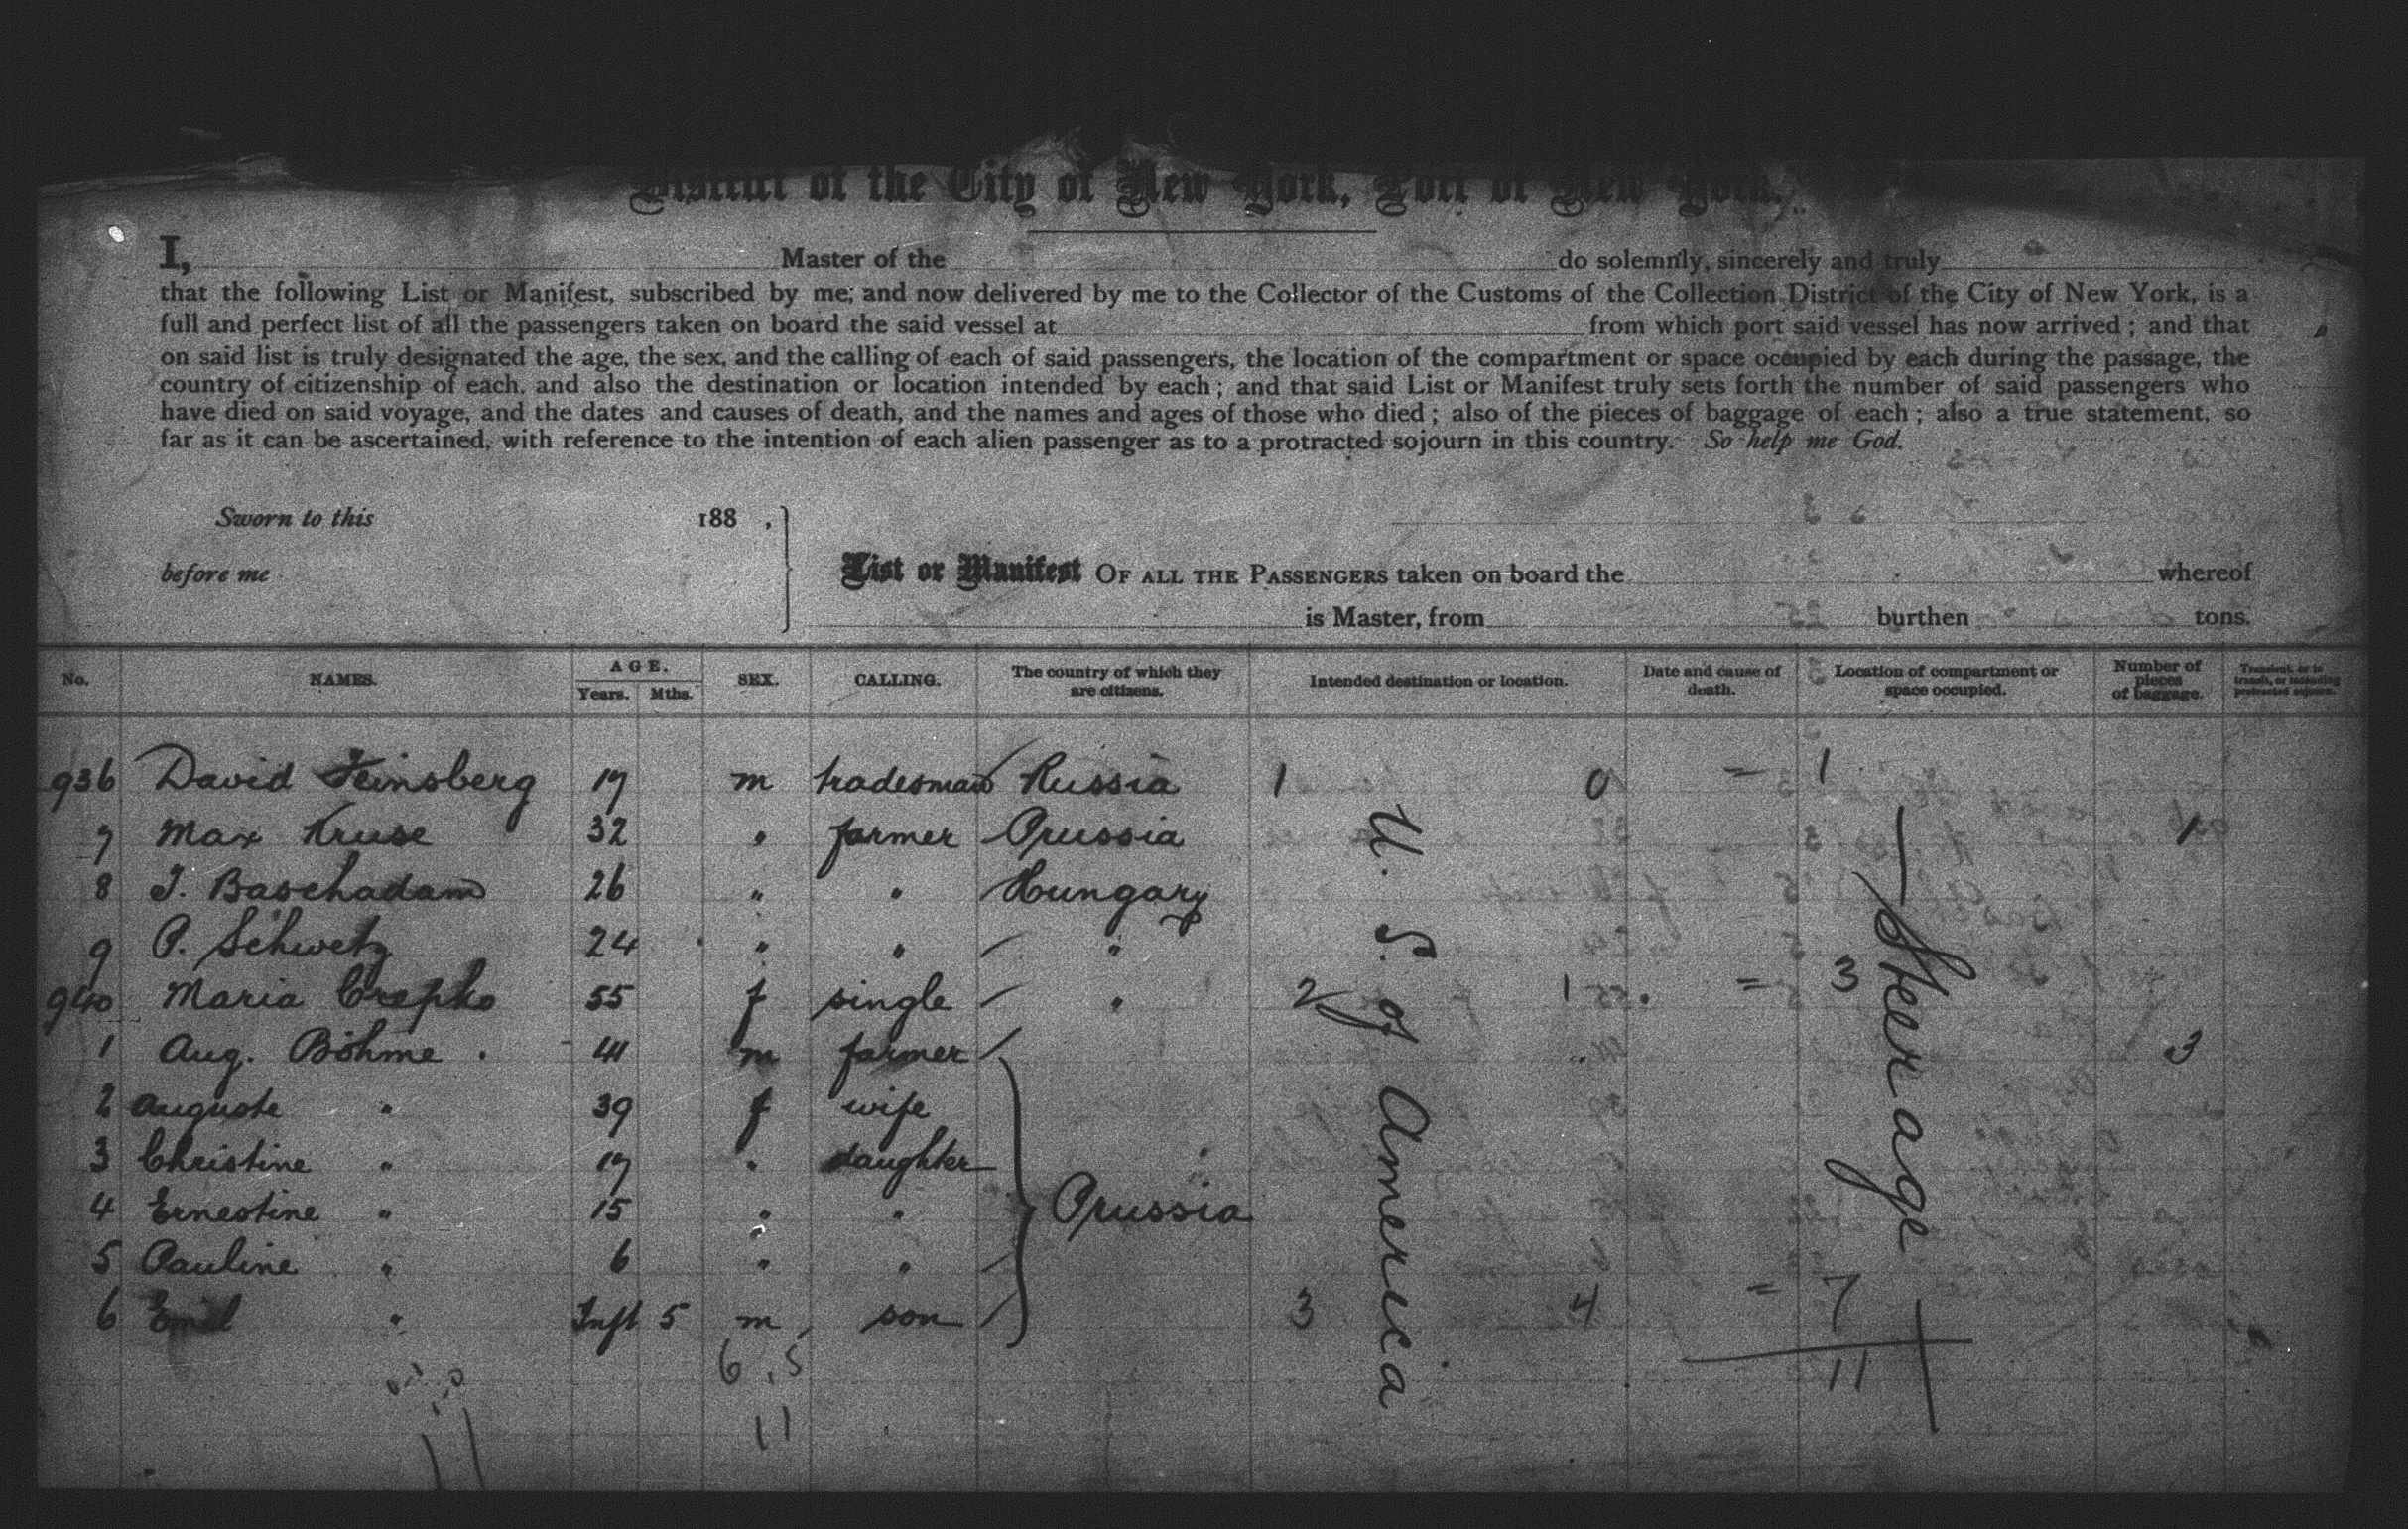 District of the City of New York, Port of New York.
I, Master of the do solemnly, sincerely and truly
that the following List or Manifest, subscribed by me; and now delivered by me to the Collector of the Customs of the Collection District of the City of New York, is a
full and perfect list of all the passengers taken on board the said vessel at from which port said vessel has now arrived; and that
on said list is truly designated the age, the sex, and the calling of each of said passengers, the location of the compartment or space occupied by each during the passage, the
country of citizenship of each, and also the destination or location intended by each; and that said List or Manifest truly sets forth the number of said passengers who
have died on said voyage, and the dates and causes of death, and the names and ages of those who died; also of the pieces of baggage of each; also a true statement, so
far as it can be ascertained, with reference to the intention of each alien passenger as to a protracted sojourn in this country. So help me God.
Sworn to this 188 ,
before me
List or Manifest OF ALL THE PASSENGERS taken on board the whereof
is Master, from burthen tons.
No. NAMES. AGE. Years. Mths. SEX. CALLING. The country of which they are citizens. Intended destination or location. Date and cause of death. Location of compartment or space occupied. Number of pieces of baggage. Transient, or in transit, or intending protracted sojourn.
936 David Feinsberg 17 m tradesman Russia 1 0 = 1
7 Max Kruse 32 " farmer Prussia 1
8 J. Baschadam 26 " " Hungary
9 P. Schwetz 24 " " "
940 Maria 55 f single " 2 1 = 3
1 Aug. Böhme . 41 m farmer 3
2 Auguste " 39 f wife
3 Christine " 17 " daughter
4 Ernestine " 15 " " Prussia
5 Pauline " 6 " "
6 Emil " Inft 5 m son 3 4 = 7
U. S. of America
Steerage
6 , 5 11
11